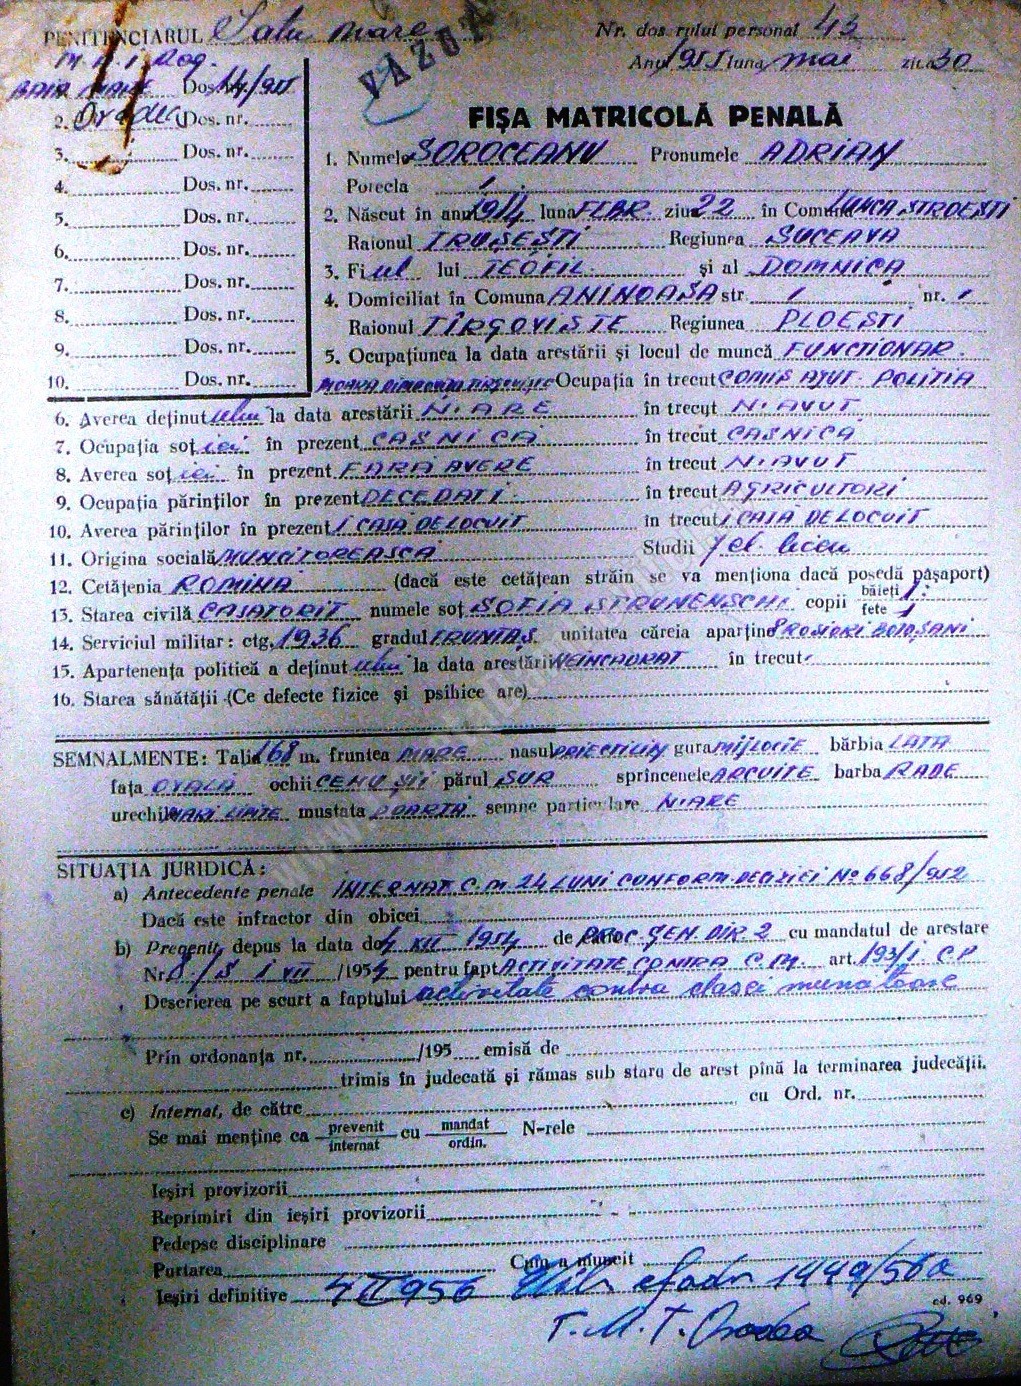 PENITENCIARUL Satu mare
VĂZUT
Nr. dosarului personal 43
Anul 1955 luna mai ziua 30
BAIA MARE Dos. nr. 14/951
2. Oradea Dos. nr.
3. Dos. nr.
4. Dos. nr.
5. Dos. nr.
6. Dos. nr.
7. Dos. nr.
8. Dos. nr.
9. Dos. nr.
10. Dos. nr.
FIȘA MATRICOLĂ PENALĂ
1. Numele SOROCEANU Pronumele ADRIAN
Porecla /
2. Născut în anul 1914 luna FEBR. ziua 22 în Comuna LUNCA STROEȘTI
Raionul TRUȘEȘTI Regiunea SUCEAVA
3. Fiul lui TEOFIL și al DOMNICA
4. Domiciliat în Comuna ANINOASA str. / nr. /
Raionul TÎRGOVISTE Regiunea PLOEȘTI
5. Ocupațiunea la data arestării și locul de muncă FUNCTIONAR
MOARA DIMBOVITA TIRGOVISTE Ocupația în trecut COMIS AJUT. POLITIA
6. Averea deținutului la data arestării N. ARE în trecut N. AVUT
7. Ocupația soției în prezent CASNICA în trecut CASNICĂ
8. Averea soției în prezent FARA AVERE în trecut N. AVUT
9. Ocupația părinților în prezent DECEDATI în trecut AGRICULTORI
10. Averea părinților în prezent 1 CASA DE LOCUIT în trecut 1 CASĂ DE LOCUIT
11. Origina socială MUNCITOREASCA Studii 7 cl. liceu
12. Cetățenia ROMINA (dacă este cetățean străin se va menționa dacă posedă pașaport)
13. Starea civilă CASATORIT numele soț SOFIA STRUNENSCHI copii băieți 1 fete 1
14. Serviciul militar: ctg. 1936 gradul FRUNTAȘ unitatea căreia aparține 8 ROSIORI BOTOȘANI
15. Apartenența politică a deținutului la data arestării NEINCADRAT în trecut -
16. Starea sănătății (Ce defecte fizice și psihice are)
SEMNALMENTE: Talia 168 m. fruntea MARE nasul gura MIJLOCIE bărbia LATA
fața OVALĂ ochii CENUȘII părul SUR sprîncenele ARCUITE barba RADE
urechi MARI LIPITE mustața POARTĂ semne particulare N. ARE
SITUAȚIA JURIDICĂ:
a) Antecedente penale INTERNAT C.M. 24 LUNI CONFORM DECIZIEI No 668/952
Dacă este infractor din obicei
b) Prevenit, depus la data de 4 XII 1954 de către PROC. GEN. DIR. 2 cu mandatul de arestare
Nr. /1954 pentru fapt ACTIVITATE CONTRA C.M. art. 193/1 C.P
Descrierea pe scurt a faptului activitate contra clasei muncitoare
Prin ordonanța nr. /195 emisă de
trimis în judecată și rămas sub stare de arest pînă la terminarea judecății.
c) Internat, de către cu Ord. nr.
Se mai menține ca prevenit internat cu mandat ordin. N-rele
Ieșiri provizorii
Reprimiri din ieșiri provizorii
Pedepse disciplinare
Purtarea Cum a muncit
Ieșiri definitive 4 II 956
T.M.T. Oradea
cd. 969